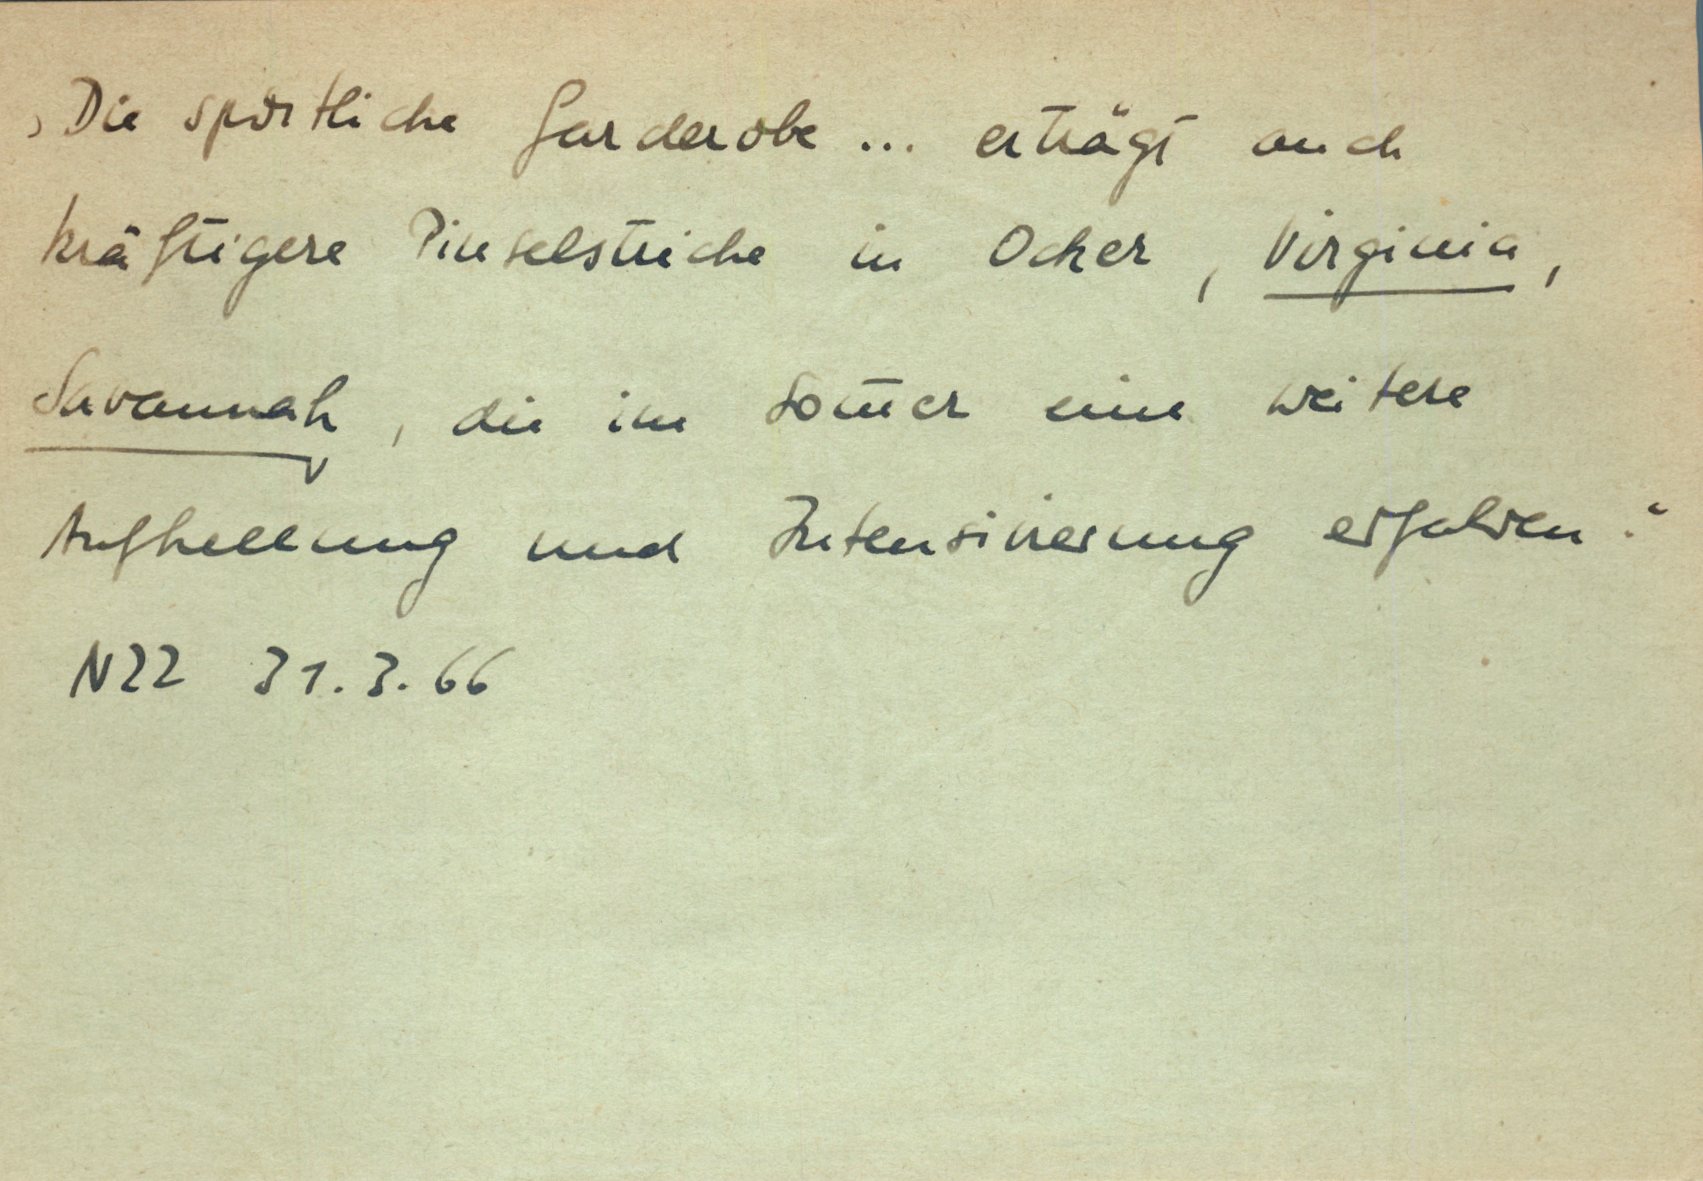 „Die sportliche Garderobe ... erträgt auch
kräftigere Pinselstriche in Ocker, Virginia,
Savannah, die im Som̅er eine weitere
Aufhellung und Intensivierung erfahren."
NZZ 31.3.66